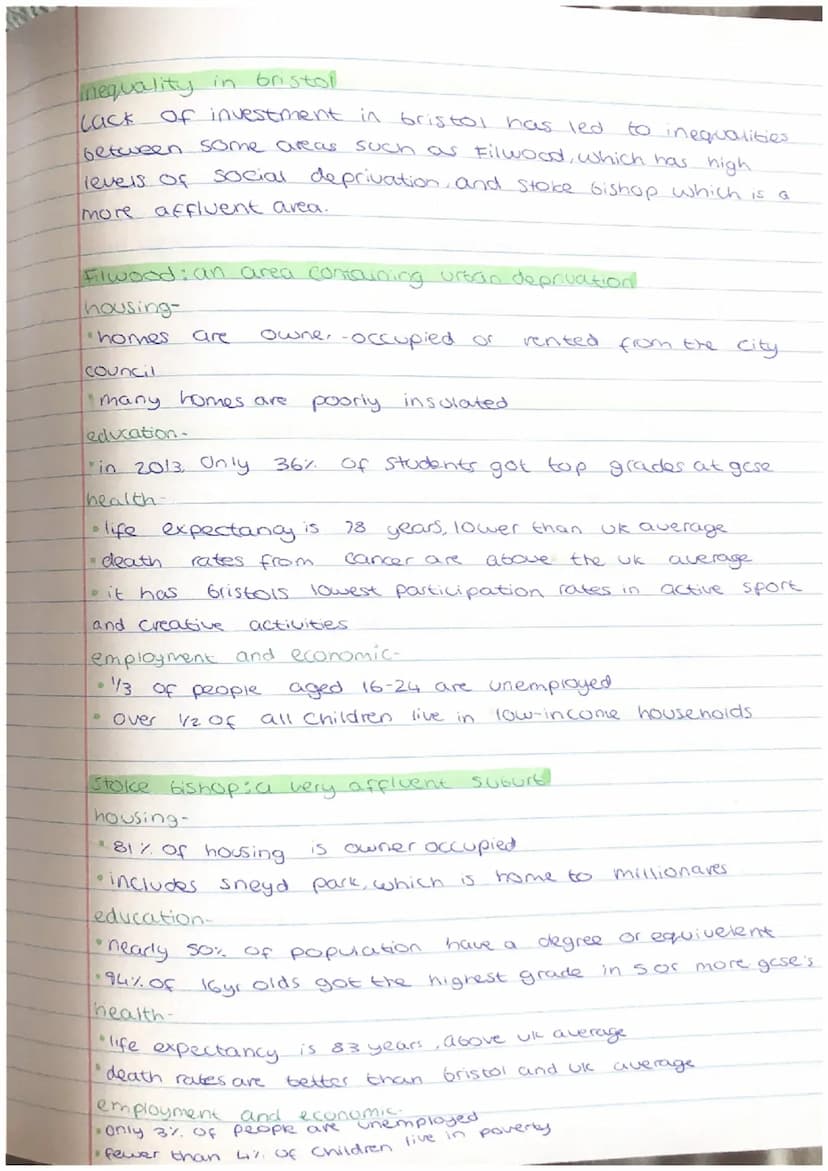 inequality in bristol
Lack of investment in bristol has led to inequalities
between some areas such as Filwood, which has high
levels of social deprivation, and stoke bishop which is a
more affluent area.
Filwood: an area containing urban deprivation
housing-
• homes are owner-occupied or rented from the city
council
• many homes are poorly insulated
education-
• in 2013, Only 36% of students got top grades at gcse
health-
• life expectancy is 78 years, lower than UK average
• death rates from cancer are above the UK average
• it has bristols lowest participation rates in active sport
and creative activities
employment and economic-
• 1/3 of people aged 16-24 are unemployed
• over 1/2 of all children live in low-income households
Stoke bishop: a very affluent suburb
housing-
• 81% of housing is owner occupied
• includes sneyd park, which is home to millionares
education-
• nearly 50% of population have a degree or equivelent
• 94% of 16yr olds got the highest grade in 5 or more gcse's
health-
• life expectancy is 83 years, above UK average
• death rates are better than bristol and UK average
employment and economic-
• only 3% of people are unemployed
• fewer than 4% of children live in poverty